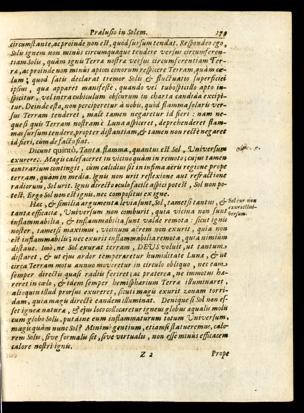 Prælusio in Solem. 179
circumstante, ac proinde non est, quod sursum tendat. Respondeo ego,
Solis ignem non minùs circumquaque tendere versus circumferen-
tiam Solis, quàm ignis Terræ nostra versus circumferentiam Ter-
ræ, ac proinde non minùs apicos eorum respicere Terram, quàm cœ-
lum; quod satis declarat tremor Solis & fluctuatio superficiei
ipsius, quæ apparet manifestè, quando vel tubospicillo apto in-
spicitur, vel intra cubiculum obscurum in charta candida excipi-
tur. Deinde esto, non perciperetur à nobis, quòd flamma solaris ver-
sus Terram tenderet, malè tamen negaretur id fieri: nam ne-
que si quis Terram nostram è Luna aspiceret, deprehenderet flam-
mas sursum tendere, propter distantiam, & tamen non rectè negaret
id fieri, cùm de facto fiat.
Dicunt quintò, Tanta flamma, quantus est Sol, Universum
exureret. Magis calefaceret in vicino quàm in remoto; cujus tamen
contrarium contingit, cùm calidius sit in infima aëris regione prope
terram, quàm in media. Ignis non urit reflexione aut refractione
radiorum, Sol urit. Ignis directo oculo facilè aspici potest, Sol non po-
test. Ergo Sol non est ignis, nec compositus ex igne.
Hæc, & similia argumenta levia sunt, Sol, tametsi tantus, &
tanta efficacia, Universum non comburit, quia vicina non sunt
inflammabilia, & inflammabilia sunt valdè remota: sicut ignis
noster, tametsi maximus, vicinum aërem non exurit, quia non
est inflammabilis; nec exurit inflammabilia remota, quia nimium
distant. Imò, ne Sol exurat terram, DEUS voluit, ut tantum
distaret, & ut ejus ardor temperaretur humiditate Lunæ, & ut
circa Terram motu annuo moveretur in circulo obliquo, nec eam
semper directis quasi radiis feriret; ac præterea, ne immotus hæ-
reret in cœlo, & idem semper hemisphærium Terræ illuminaret,
alioquin illud prorsus exureret, sicuti magis exurit zonam torri-
dam, quia magis directè eandem illuminat. Denique si Sol non es-
set igneæ naturæ, & ejus loco collocaretur igneus globus æqualis molis
cum globo Solis, putasne eum inflammaturum totum Universum,
magis quàm nunc Sol? Minimè gentium, etiamsi statueremus, calo-
rem Solis, sive formalis sit, sive virtualis, non esse minùs efficacem
calore nostri ignis.
Sol cur non
Z 2 Prope